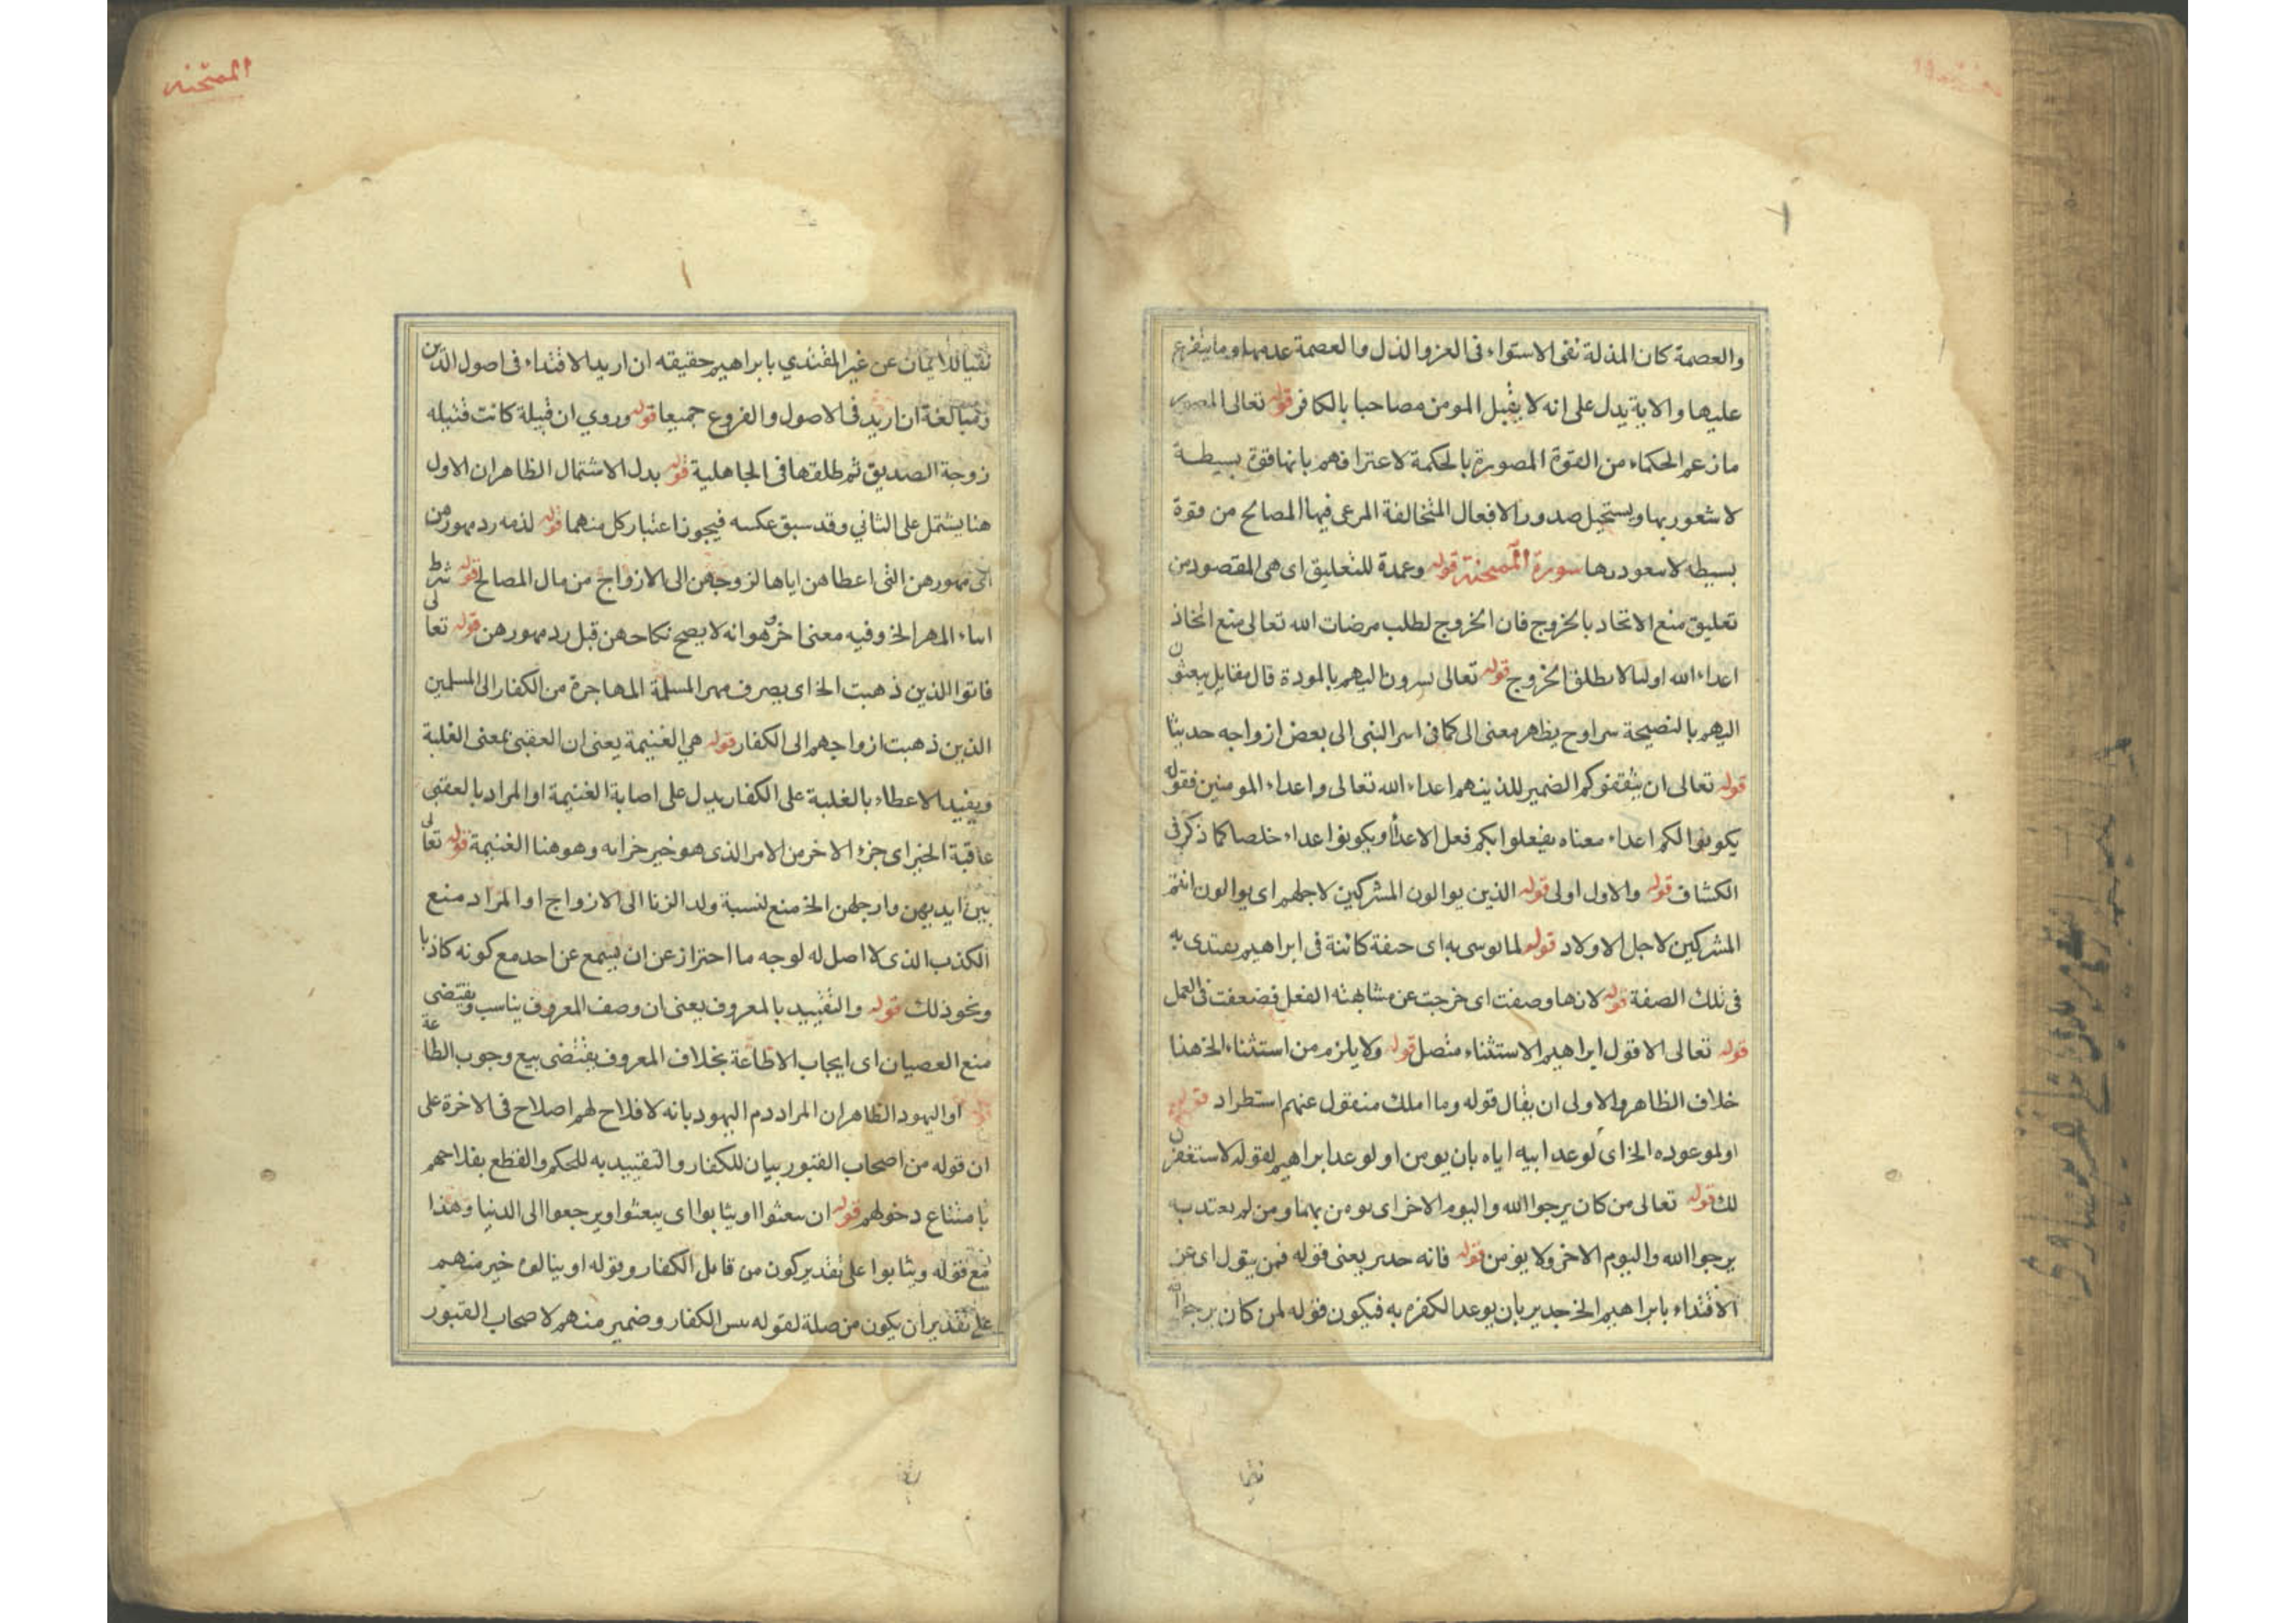 والعصمة كان المذلة نفى الاستواء فى العز والذل والعصمة عدمها وما يتفرع
عليها والاية يدل على انه لا يقبل المومن مصاحبا بالكافر قوله تعالى المصور
ما زعم الحكماء من القوة المصورة بالحكمة لاعترافهم بانها قوة بسيطة
لا شعور بها ويستحيل صدور الافعال المتخالفة المرعى فيها المصالح من قوة
بسيطه لا سعور رها سورة الممتحنة قوله وعمدة للتعليق اى هى المقصود من
تعليق منع الاتحاد بالخروج فان الخروج لطلب مرضات الله تعالى منع اتخاذ
اعداء الله اوليا لا مطلق الخروج قوله تعالى تسرون اليهم بالمودة قال مقاتل يبعثون
اليهم بالنصيحة سرا وح يظاهر معنى الى كما فى اسر النبى الى بعض ازواجه حديثا
قوله تعالى ان يثقفوكم الضمير للذين هم اعداء الله تعالى واعداء المومنين فقوله
يكونوا لكم اعداء معناه يفعلوا بكم فعل الاعداء ويكونوا اعداء خلصا كما ذكر فى
الكشاف قوله والاول اولى قوله الذين يوالون المشركين لاجلهم اى يوالون انتم
المشركين لاجل الاولاد قوله لما يوسى به اى صفة كائنة فى ابراهيم يقتدى به
فى تلك الصفة قوله لانها وصفت اى خرجت عن مشابهة الفعل فضعفت فى العمل
قوله تعالى الا قول ابراهيم الاستثناء متصل قوله ولا يلزم من استثناء الخ هذا
خلاف الظاهر والاولى ان يقال قوله وما املك منقول عنهم استطراد قوله
او لموعوده الخ اى لوعد ابيه اياه بان يومن او لوعد ابراهيم لقوله لاستغفرن
لك قوله تعالى من كان يرجوا الله واليوم الاخر اى يومن بهما ومن لم يعتد به
يرجوا الله واليوم الاخر ولا يؤمن قوله فانه جدير يعنى قوله فمن يتول اى عن
الاقتداء بابراهيم الخ جدير بان يوعد الكفره به فيكون قوله لمن كان يرجوا
نفيا
الممتحنه
نفيا للايمان عن غير المقتدي بابراهيم حقيقه ان اريد الاقتداء فى اصول الدين
ومبالغة ان اريد فى الاصول والفروع جميعا قوله وروي ان قبيلة كانت قتيله
زوجة الصديق ثم طلقها فى الجاهلية قوله بدل الاشتمال الظاهر ان الاول
هنا يشتمل على الثاني وقد سبق عكسه فيجوز اعتبار كل منهما قوله لذمه رد مهورهن
اى مهورهن التى اعطاهن اياها لزوجهن الى الازواج من مال المصالح قوله شرط
ايتاء المهر الخ وفيه معنى اخر وهو انه لا يصح نكاحهن قبل رد مهورهن قوله تعالى
فاتوا الذين ذهبت الخ اى يصرف مهر المسلمة المهاجرة من الكفار الى المسلمين
الذين ذهبت ازواجهم الى الكفار قوله هى الغنيمة يعنى ان العقبى بمعنى الغلبة
ويفيد الاعطاء بالغلبة على الكفار يدل على اصابة الغنيمة او المراد بالعقبى
عاقبة الخير اى جزء الاخر من الامر الذى هو خير خرابه وهو هنا الغنيمة قوله تعالى
بين ايديهن وارجلهن الخ منع لنسبة ولد الزنا الى الازواج او المراد منع
الكذب الذى لا اصل له لوجه ما احتراز عن ان يسمع عن احد مع كونه كاذبا
ونحو ذلك قوله والتقييد بالمعروف يعنى ان وصف المعروف يناسب ويقتضى
منع العصيان اى ايجاب الاطاعة بخلاف المعروف يقتضى بيع وجوب الطاعة
او اليهود الظاهر ان المراد دم اليهود بانه لا فلاح لهم اصلاح فى الاخرة على
ان قوله من اصحاب القبور بيان للكفار والتقييد به للحكم والقطع بفلاحهم
بامتناع دخولهم قوله ان يبعثوا او يثابوا اى يبعثوا ويرجعوا الى الدنيا وهذا
مع قوله ويثابوا على تقدير كون من قابل الكفار وقوله او ينالوه خير منهم
على تقدير ان يكون من صلة لقوله يئس الكفار وضمير منهم لاصحاب القبور